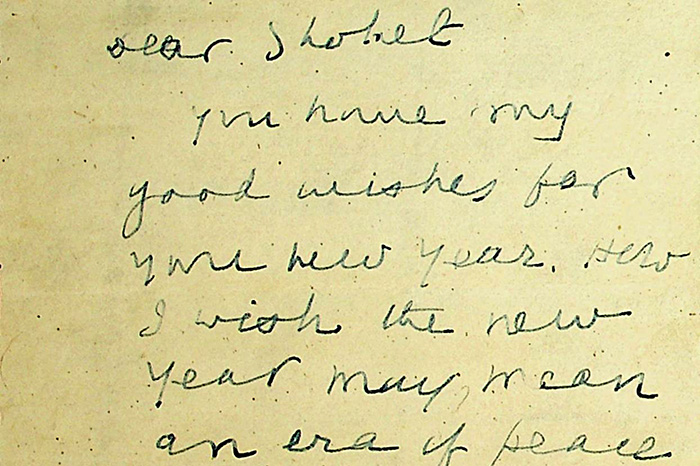 Dear Shohet
you have my
good wishes for
your new year. How
I wish the new
year may mean
an era of peace